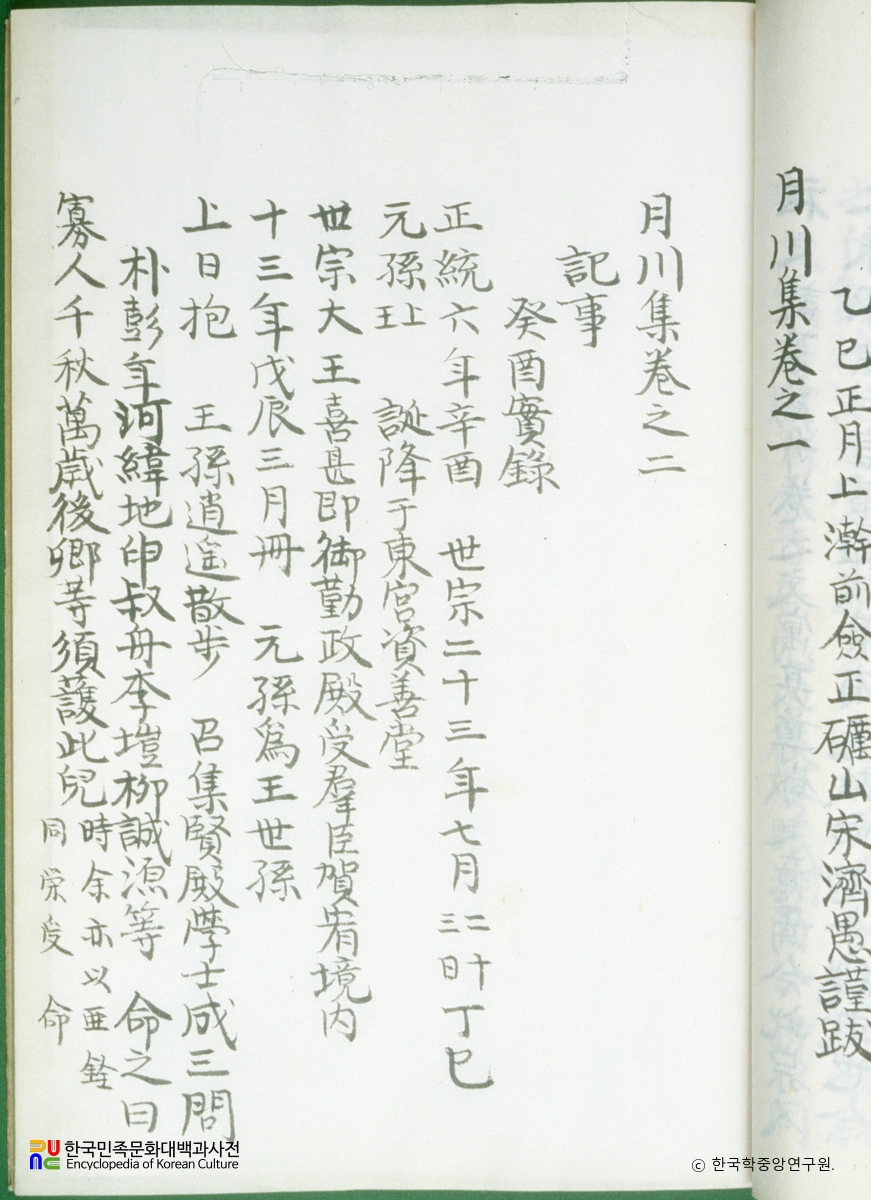 乙巳正月上澣前僉正礪山宋濟愚謹跋
月川集卷之一
月川集卷之二
記事
癸酉實錄
正統六年辛酉 世宗二十三年七月二十三日丁巳
元孫上王 誕降于東宮資善堂
世宗大王喜甚即御勤政殿受羣臣賀宥境内
十三年戊辰三月冊 元孫爲王世孫
上日抱 王孫逍遥散步 召集賢殿學士成三問
朴彭年河緯地申叔舟李塏柳誠源等 命之曰
寡人千秋萬歲後卿等須護此兒 時余亦以亜銓
同榮受 命
한국민족문화대백과사전
Encyclopedia of Korean Culture
© 한국학중앙연구원.